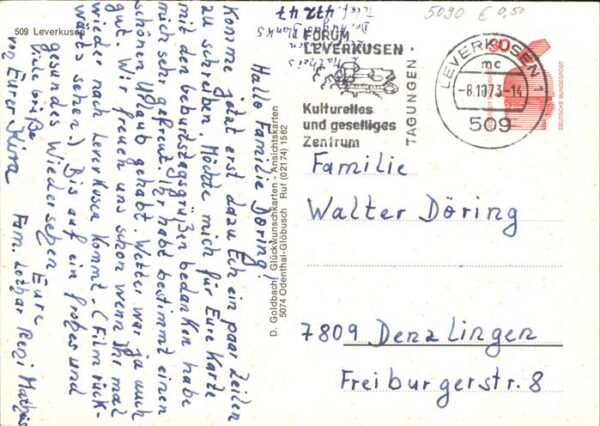 509 Leverkusen
Hallo Familie Döring!
Komme jetzt erst dazu Euch ein paar Zeilen
zu schreiben. Möchte mich für Eure Karte
mit den Geburtstagsgrüßen bedanken habe
mich sehr gefreut. Ihr habt bestimmt einen
schönen Urlaub gehabt. Wetter war ja auch
gut. Wir freuen uns schon wenn Ihr mal
wieder nach Leverkusen kommt. (Film rück-
wärts sehen.) Bis auf ein frohes und
gesundes Wiedersehen Eure
liebe Grüße Fam. Lothar Resi Matheis
von Eurer
Telef. 472 47
D. Goldbach · Glückwunschkarten - Ansichtskarten
5074 Odenthal-Glöbusch Ruf (02174) 1582
5090 € 0,50
FORUM
LEVERKUSEN
TAGUNGEN
Kulturelles
und geselliges
Zentrum
LEVERKUSEN 1
mc
-8.10.73-14
509
30
DEUTSCHE BUNDESPOST
Familie
Walter Döring
7809 Denzlingen
Freiburgerstr. 8